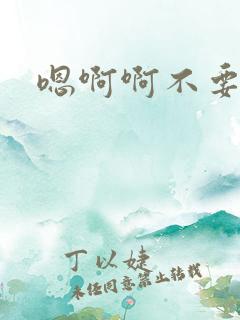 嗯啊啊不要
丁以婕
未经同意禁止转载